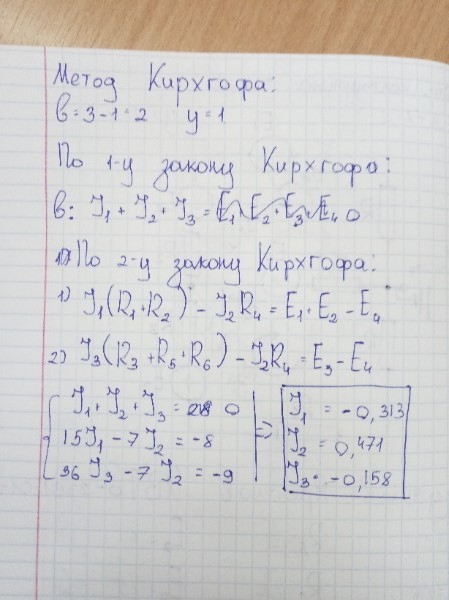 Метод Кирхгофа:
в = 3 - 1 = 2 у = 1
По 1-у закону Кирхгофа:
в: J₁ + J₂ + J₃ = 0
По 2-у закону Кирхгофа:
1) J₁(R₁ + R₂) - J₂R₄ = E₁ + E₂ - E₄
2) J₃(R₃ + R₅ + R₆) - J₂R₄ = E₃ - E₄
J₁ + J₂ + J₃ = 0
15J₁ - 7J₂ = -8
36J₃ - 7J₂ = -9
=>
J₁ = -0,313
J₂ = 0,471
J₃ = -0,158